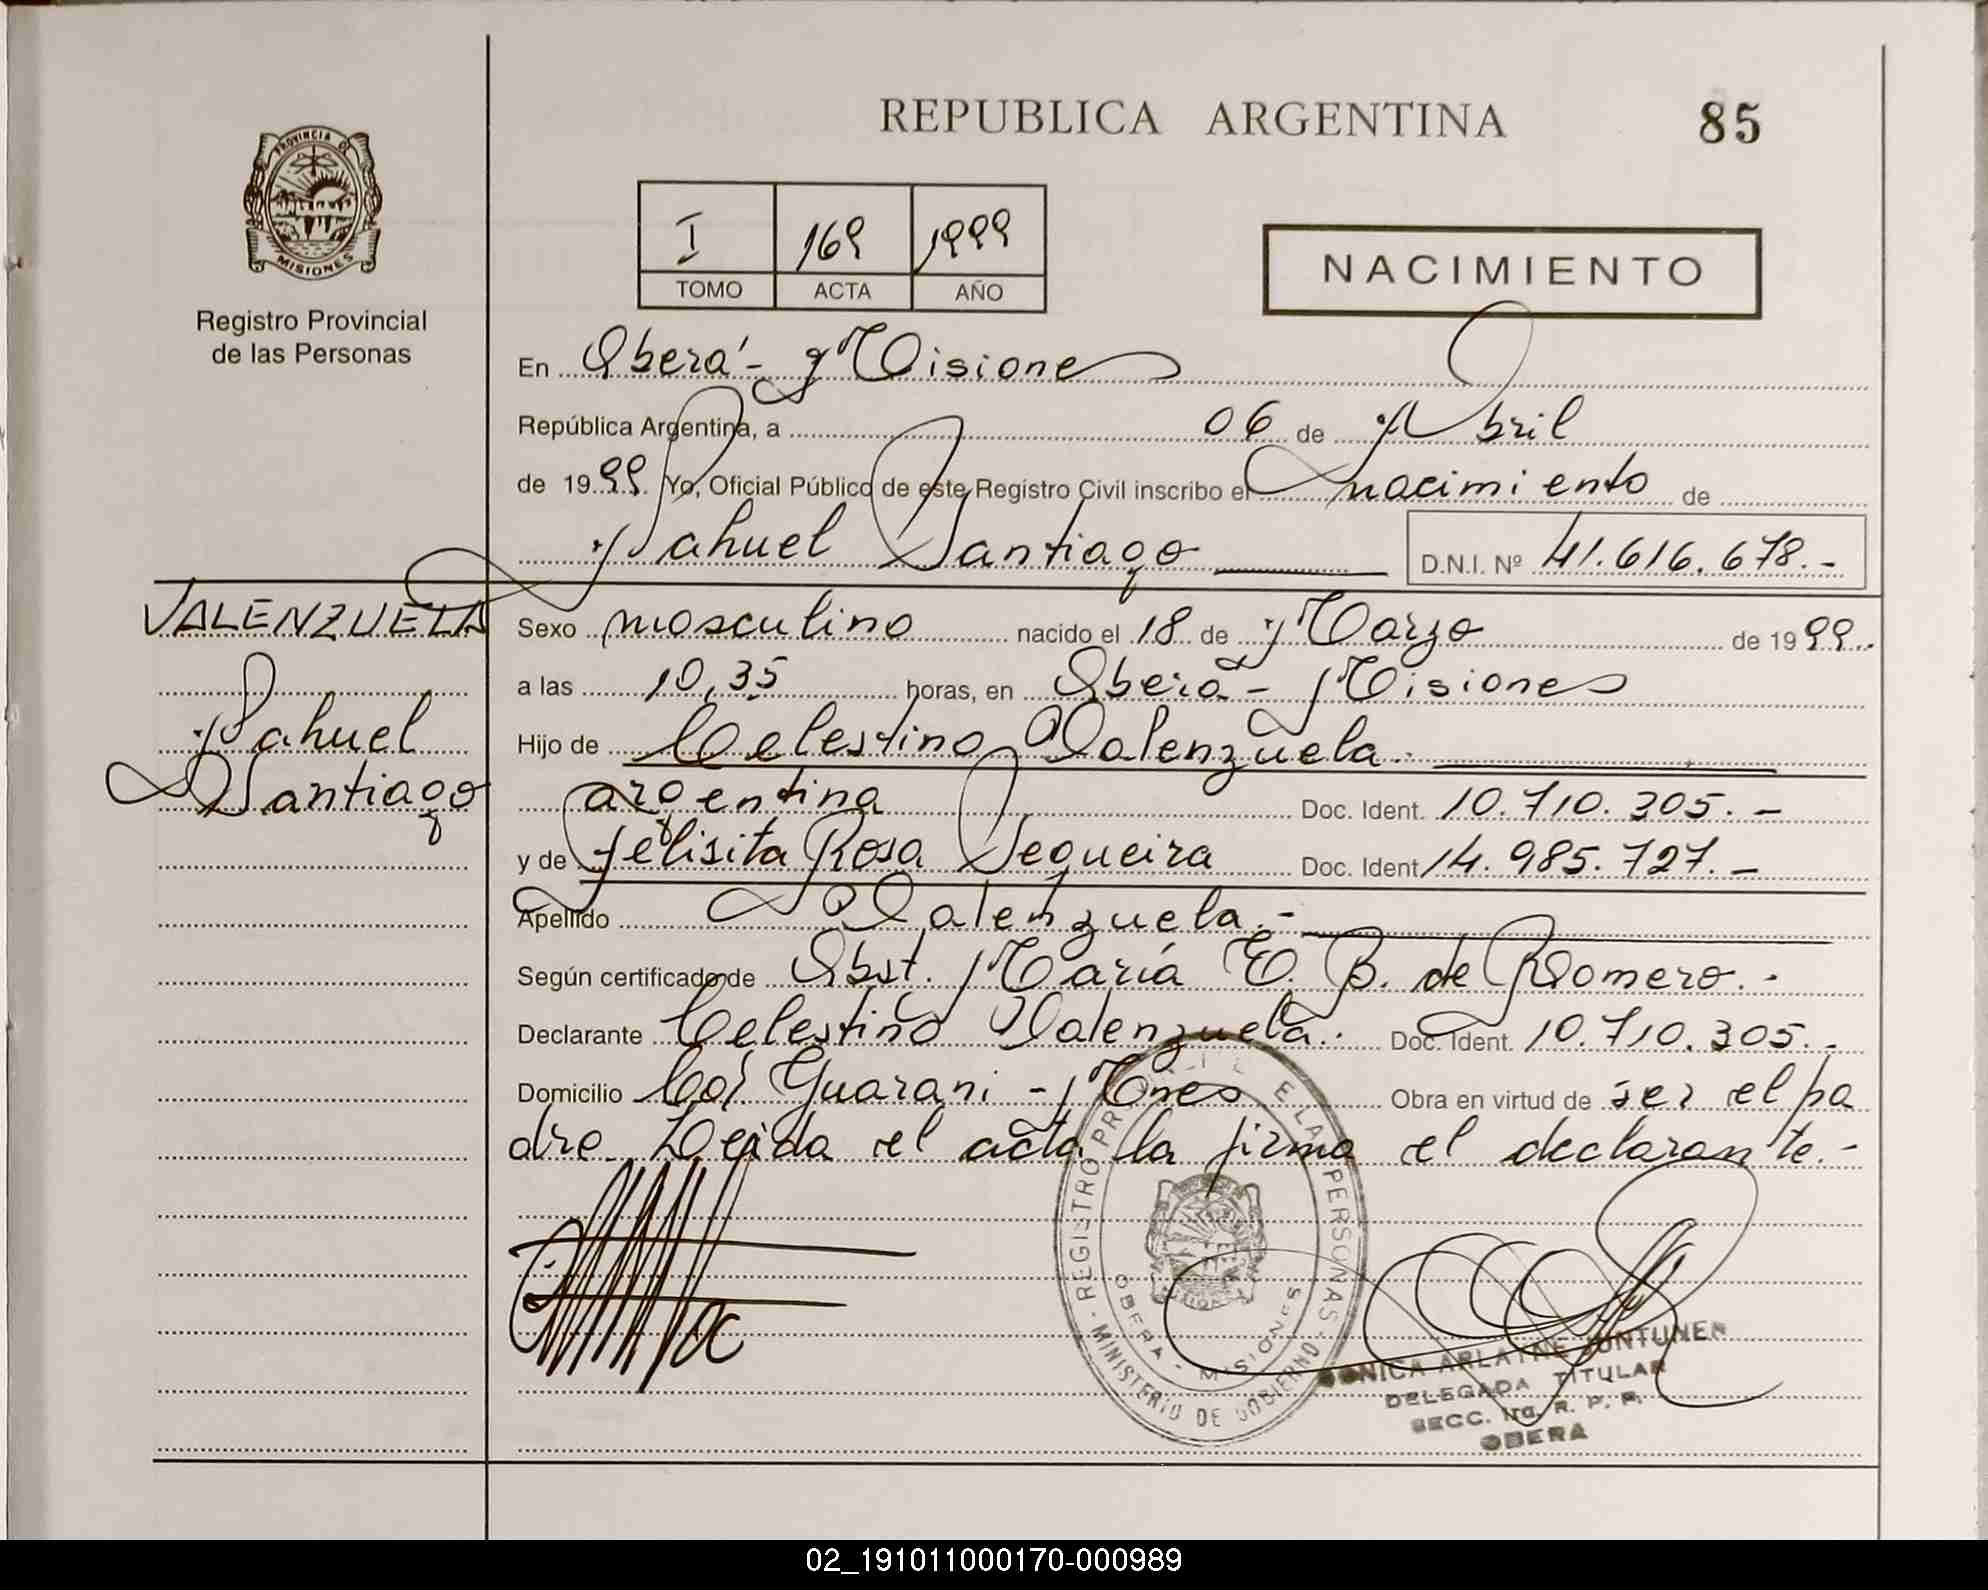 PROVINCIA DE
MISIONES
Registro Provincial
de las Personas
REPUBLICA ARGENTINA 85
I 169 1999
TOMO ACTA AÑO
NACIMIENTO
En Oberá - Misiones
República Argentina, a 06 de Abril
de 1999. Yo, Oficial Público de este Registro Civil inscribo el nacimiento de
Nahuel Santiago D.N.I. Nº 41.616.678.-
VALENZUELA
Nahuel
Santiago
Sexo masculino nacido el 18 de Marzo de 1999
a las 10,35 horas, en Oberá - Misiones
Hijo de Celestino Valenzuela.
argentina Doc. Ident. 10.710.305.-
y de Felisita Rosa Sequeira Doc. Ident 14.985.727.-
Apellido Valenzuela.-
Según certificado de Obst. María E. B. de Romero.-
Declarante Celestino Valenzuela. Doc. Ident. 10.710.305.-
Domicilio Col. Guarani - Mnes Obra en virtud de ser el pa
dre. Leida el acta la firma el declarante.-
REGISTRO PROVINCIAL DE LAS PERSONAS
MINISTERIO DE GOBIERNO
OBERA - MISIONES
ARLAYNE
DELEGADA TITULAR
SECC. R. P. P.
OBERA
02_191011000170-000989